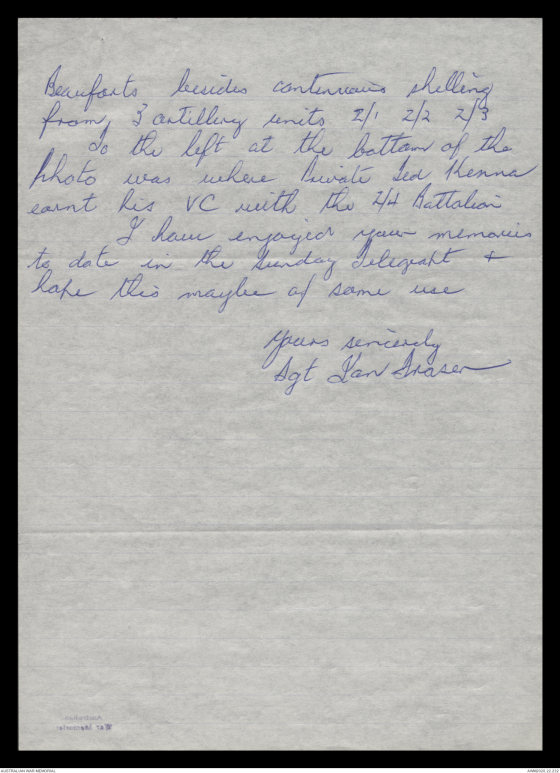 Beauforts besides continuous shelling
from 3 artillery units 2/1 2/2 2/3
To the left at the bottom of the
photo was where Private Ted Kenna
earnt his VC with the 2/4 Battalion
I have enjoyed your memories
to date in the Sunday Telegraph +
hope this maybe of some use
Yours sincerely
Sgt Ian Fraser
Australian
War Memorial
AUSTRALIAN WAR MEMORIAL